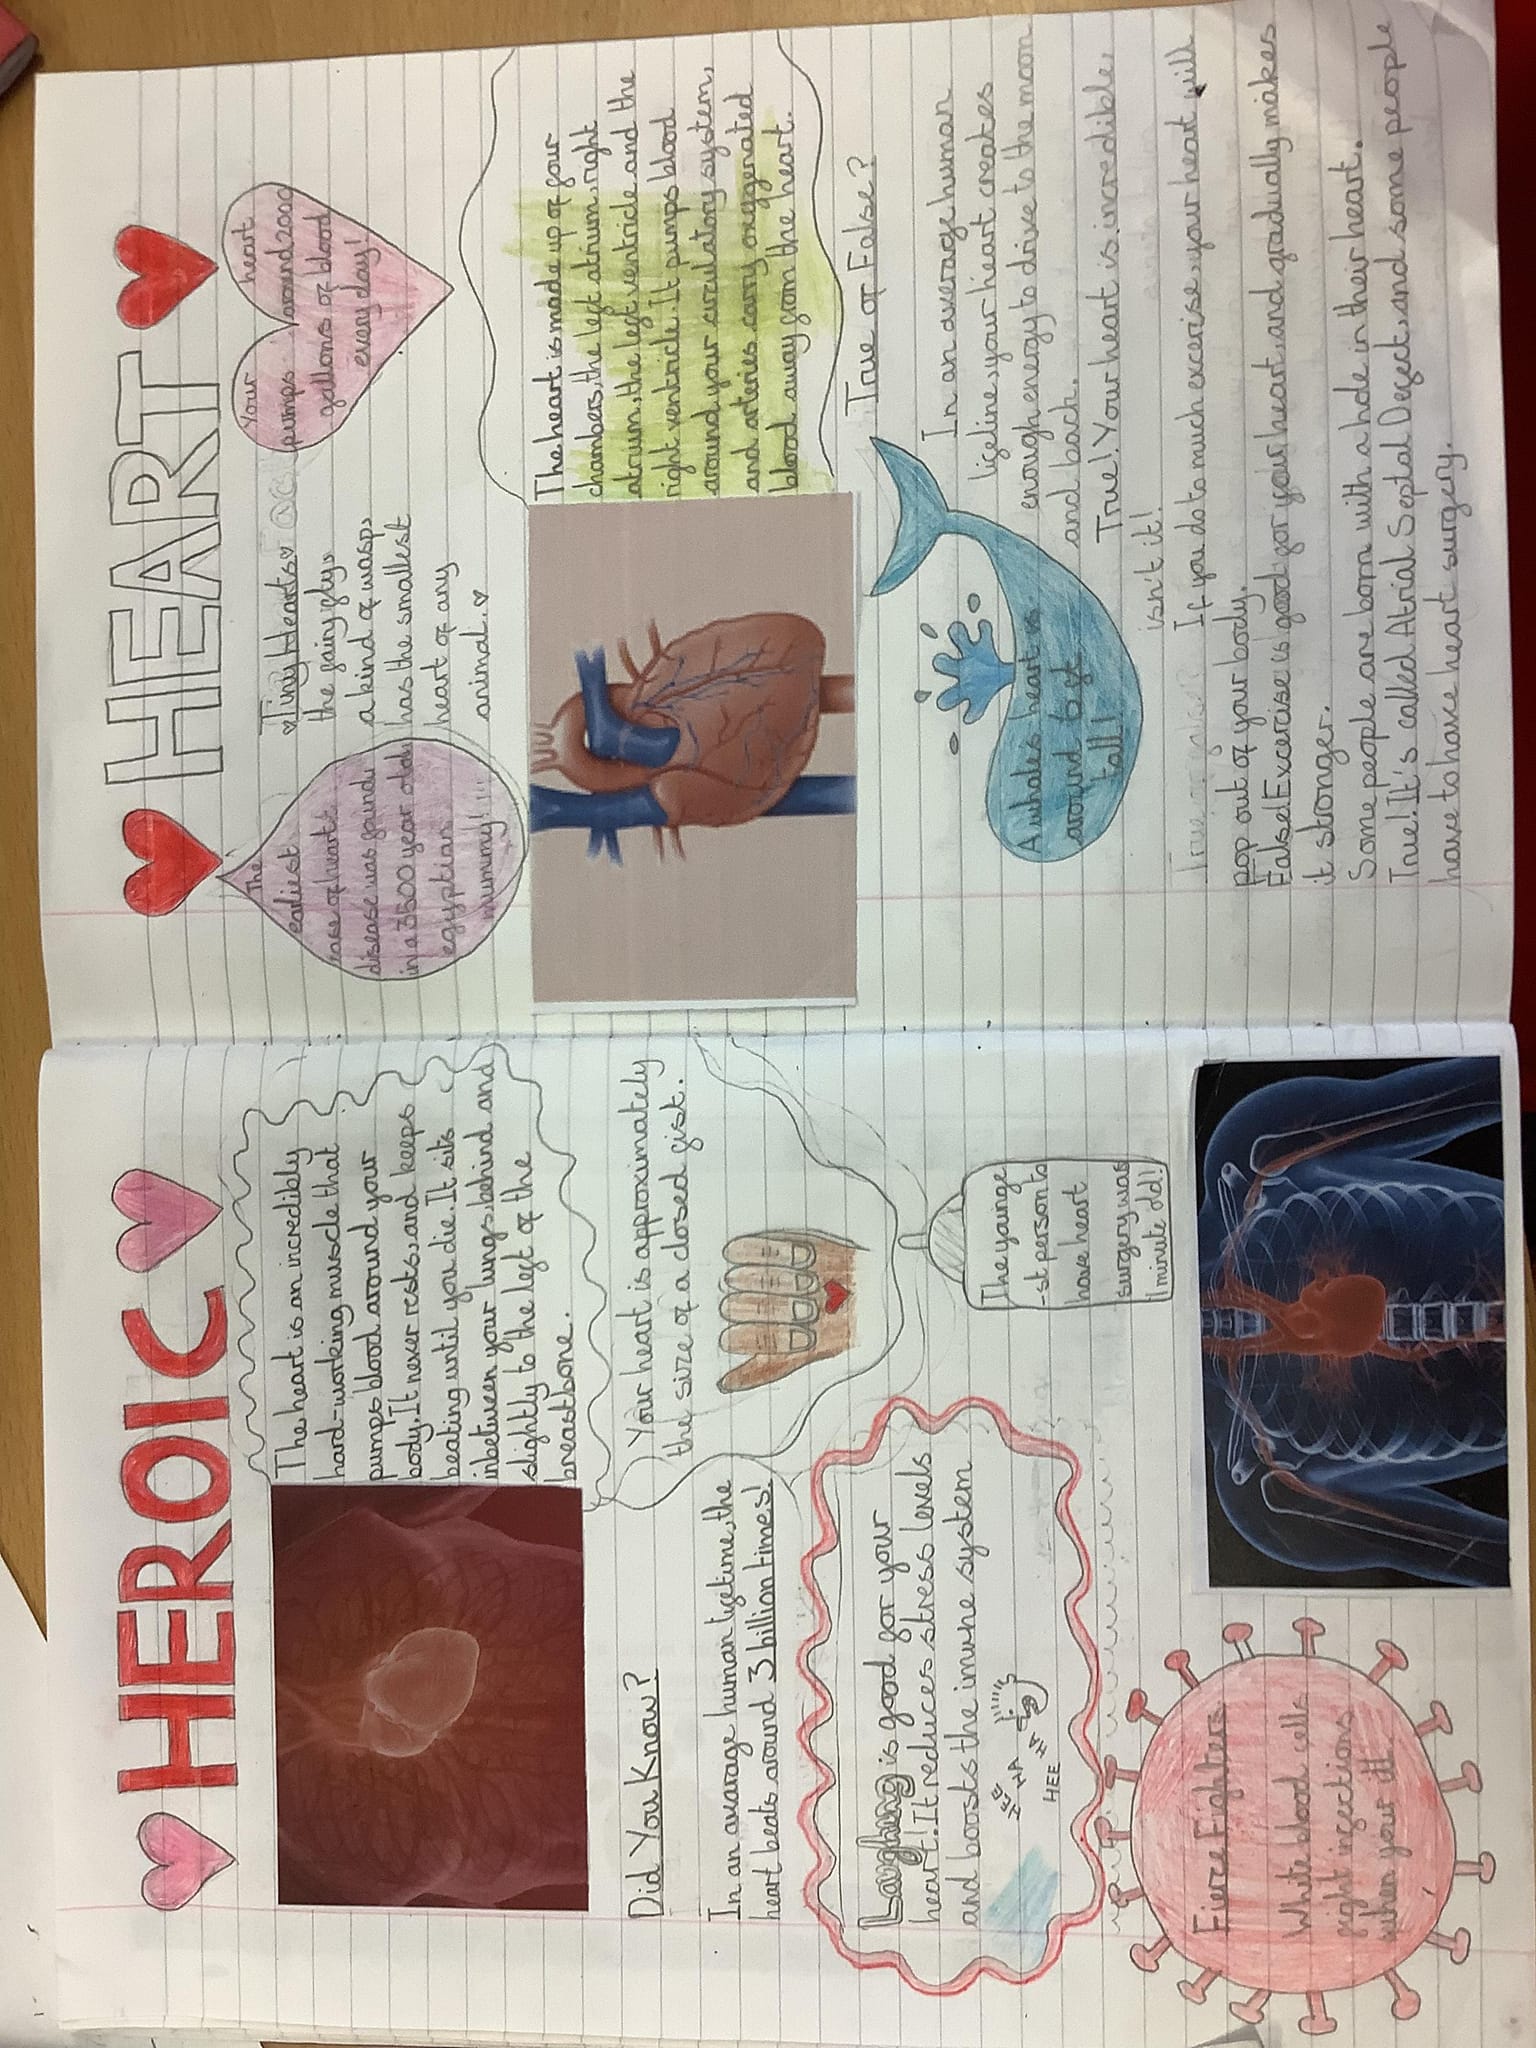 HEROIC
The heart is an incredibly
hard-working muscle that
pumps blood around your
body. It never rests, and keeps
beating until you die. It sits
inbetween your lungs, behind and
slightly to the left of the
breastbone.
Did You Know?
In an avarage human lifetime, the
heart beats around 3 billion times!
Your heart is approximately
the size of a closed fist.
Laughing is good for your
heart! It reduces stress levels
and boosts the imune system
HEE
HA
HEE
HA
The younge
-st person to
have heart
surgery was
1 minute old!
Fierce Fighters
White blood cells
fight infections
when your ill.
HEART
The
earliest
case of heart
disease was found
in a 3500 year old
egyptian
mummy!!!
♥Tiny Hearts♥
the fairyfly,
a kind of wasp,
has the smallest
heart of any
animal.♥
Your heart
pumps around 2000
gallons of blood
every day!
The heart is made up of four
chambers, the left atrium, right
atrium, the left ventricle and the
right ventricle. It pumps blood
around your circulatory system,
and arteries carry oxygenated
blood away from the heart.
True or False?
In an average human
lifeline, your heart creates
enough energy to drive to the moon
and back.
True! Your heart is incredible,
isn't it!
A whales heart is
around 6 ft
tall!
If you do to much excerise, your heart will
pop out of your body.
False! Excerise is good for your heart, and gradually makes
it stronger.
Some people are born with a hole in their heart.
True! It's called Atrial Septal Defect, and some people
have to have heart surgery.